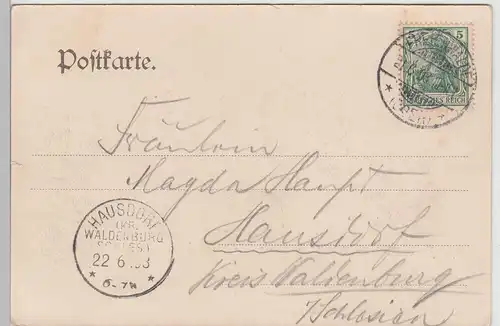 5
DEUTSCHES REICH
Postkarte.
Fräulein
Magda Haupt
Hausdorf
Kreis Waldenburg
/Schlesien
HAUSDORF
(KR.
WALDENBURG
SCHLES.)
22 6. 03
* 6-7N *